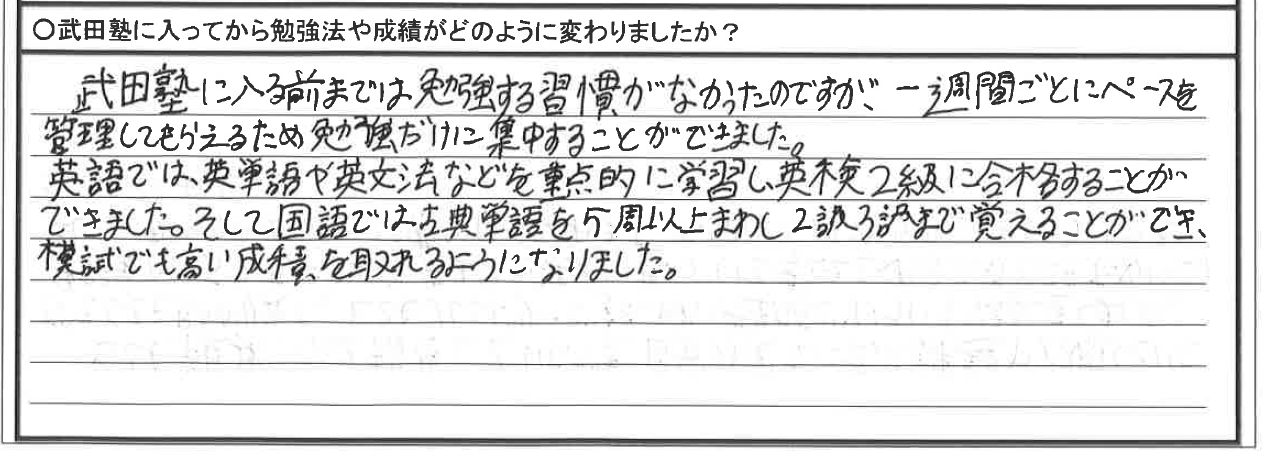 ○武田塾に入ってから勉強法や成績がどのように変わりましたか？
武田塾に入る前までは勉強する習慣がなかったのですが、一週間ごとにペースを
管理してもらえるため勉強だけに集中することができました。
英語では、英単語や英文法などを重点的に学習し、英検2級に合格することが
できました。そして国語では古典単語を5周以上まわし2訳3訳まで覚えることができ、
模試でも高い成績を取れるようになりました。